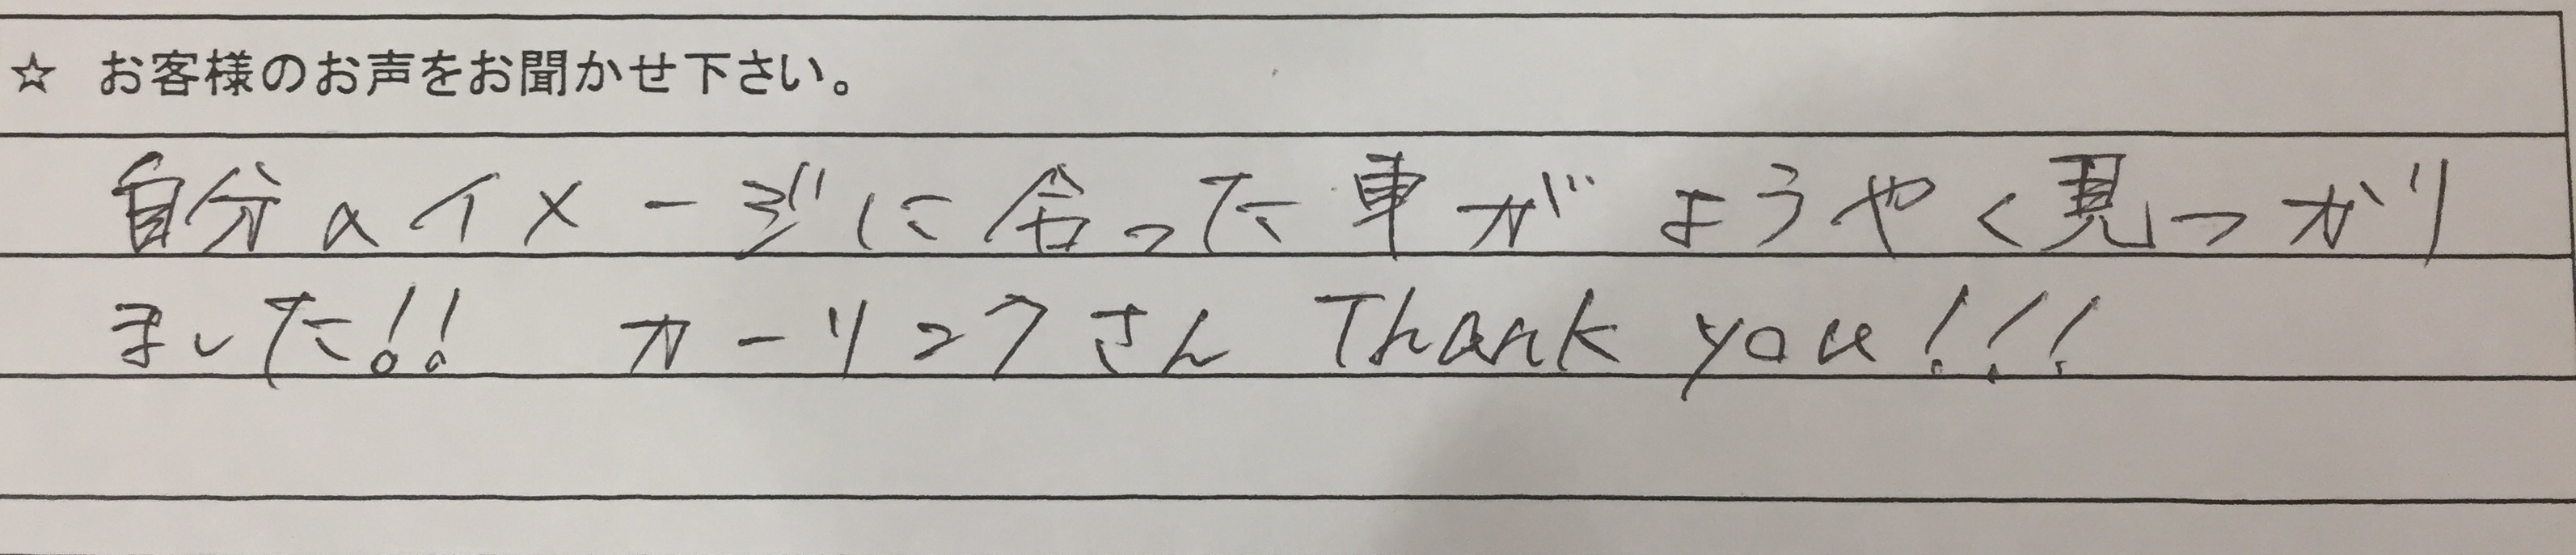 ☆ お客様のお声をお聞かせ下さい。
自分のイメージに合った車がようやく見つかり
ました!! カーリンクさん Thank you!!!